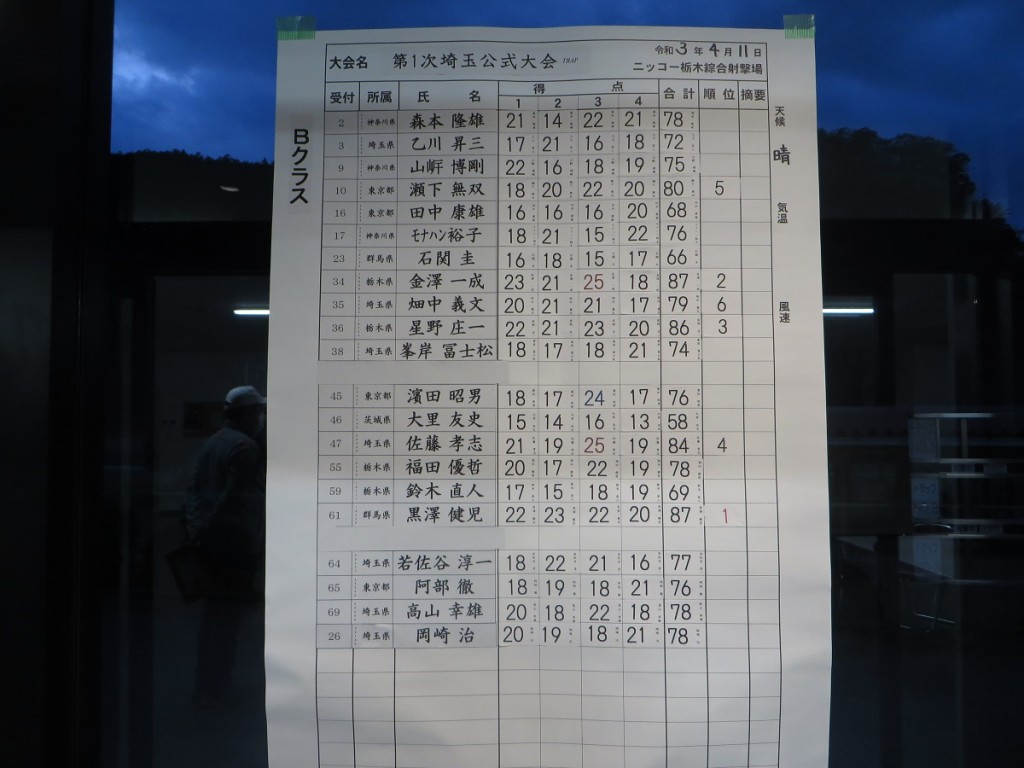 令和 3 年 4 月 11 日
大会名 第1次埼玉公式大会 TRAP ニッコー栃木綜合射撃場
受付 所属 氏 名 得 点 合計 順位 摘要
1 2 3 4
Bクラス
天候 晴
気温
風速
2 神奈川県 森本 隆雄 21 14 22 21 78
3 埼玉県 乙川 昇三 17 21 16 18 72
9 神奈川県 山㟁 博剛 22 16 18 19 75
10 東京都 瀬下 無双 18 20 22 20 80 5
16 東京都 田中 康雄 16 16 16 20 68
17 神奈川県 モナハン裕子 18 21 15 22 76
23 群馬県 石関 圭 16 18 15 17 66
34 栃木県 金澤 一成 23 21 25 18 87 2
35 埼玉県 畑中 義文 20 21 21 17 79 6
36 栃木県 星野 庄一 22 21 23 20 86 3
38 埼玉県 峯岸 冨士松 18 17 18 21 74
45 東京都 濱田 昭男 18 17 24 17 76
46 茨城県 大里 友史 15 14 16 13 58
47 埼玉県 佐藤 孝志 21 19 25 19 84 4
55 栃木県 福田 優哲 20 17 22 19 78
59 栃木県 鈴木 直人 17 15 18 19 69
61 群馬県 黒澤 健児 22 23 22 20 87 1
64 埼玉県 若佐谷 淳一 18 22 21 16 77
65 東京都 阿部 徹 18 19 18 21 76
69 埼玉県 高山 幸雄 20 18 22 18 78
26 埼玉県 岡崎 治 20 19 18 21 78